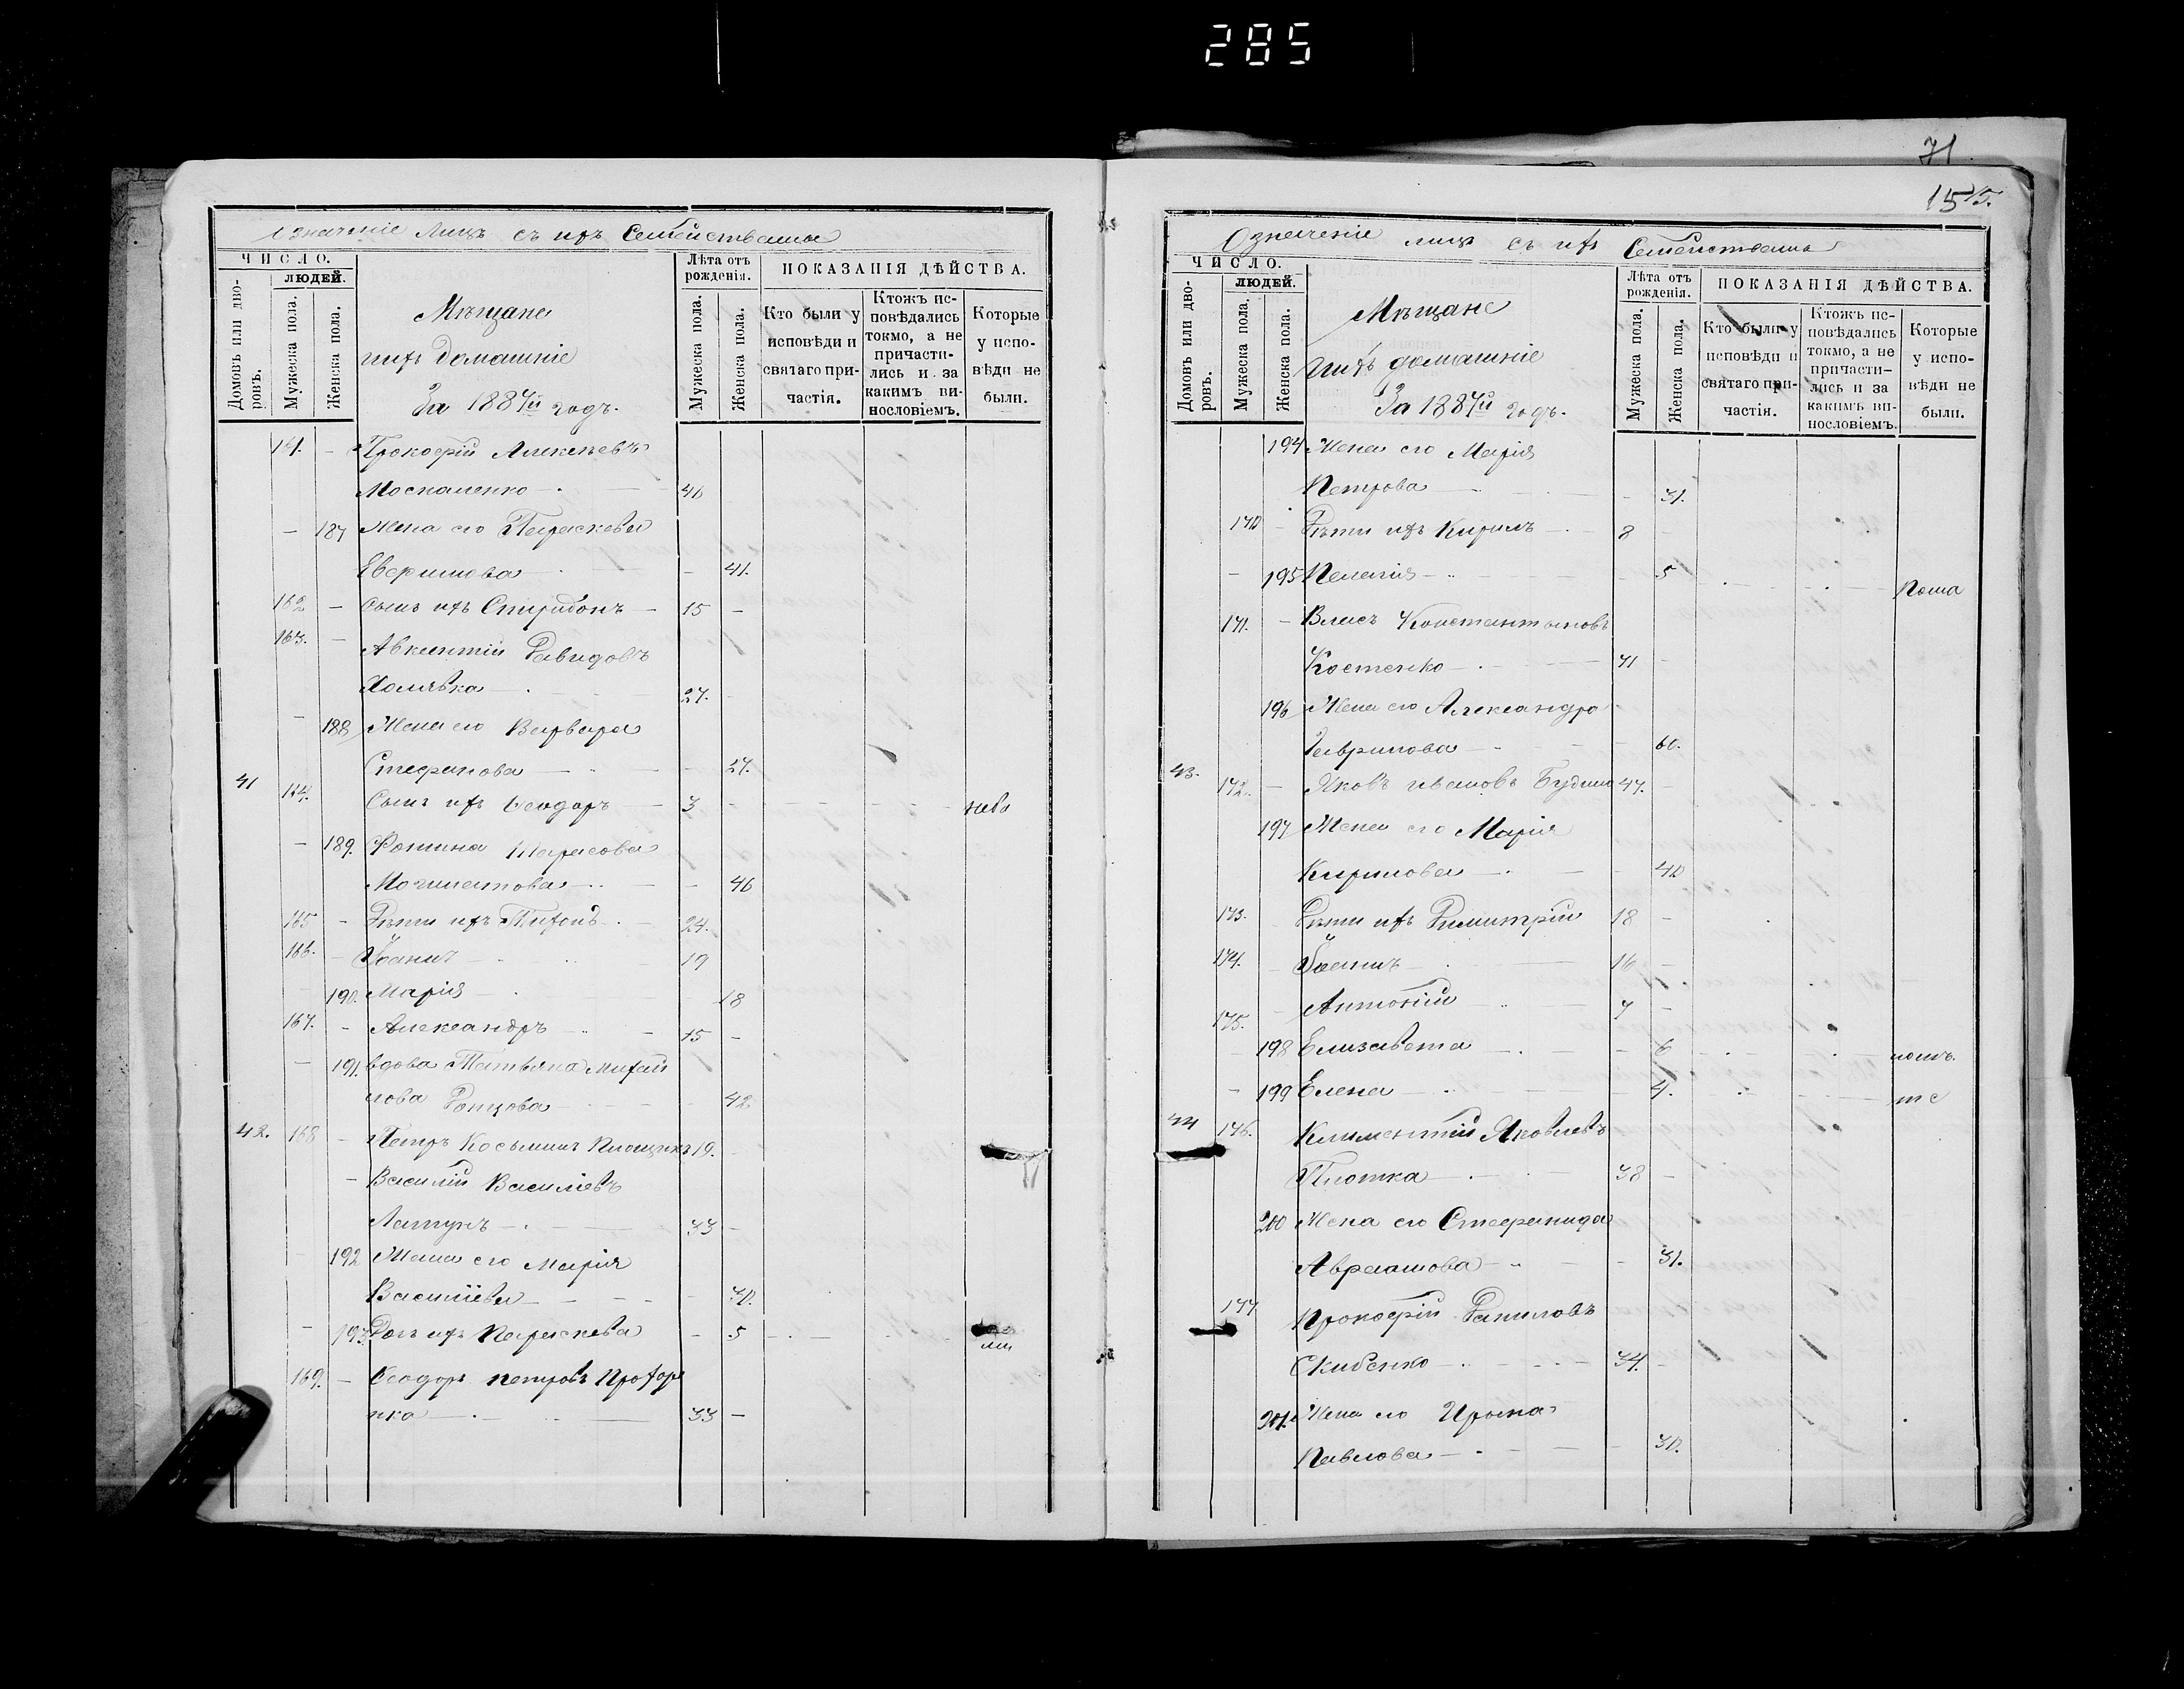 285
означеніе лицъ съ ихъ Семействами
ЧИСЛО.
Домовъ или дворовъ.
ЛЮДЕЙ.
Мужеска пола.
Женска пола.
Мѣщане
ихъ домашніе
За 1887й годъ.
Лѣта отъ рожденія.
Мужеска пола.
Женска пола.
ПОКАЗАНІЯ ДѢЙСТВА.
Кто были у исповѣди и святаго причастія.
Ктожъ исповѣдались токмо, а не причастились и за какимъ винословіемъ.
Которые у исповѣди не были.
Прокофій Алексѣевъ
Москаленко 46
187 Жена его Параскева
41.
162 Сынъ ихъ Спиридонъ 15
163. Авксентій Давидовъ
27.
188 Жена его Варвара
Стефанова 27.
41 164. Сынъ ихъ Ѳеодоръ 3
189. Фотина Тарасова
46
165 Дѣти ихъ Тихонъ 24.
166. Іоаннъ 19
190. Марія 18
167. Александръ 15
191. вдова Татьяна Михай
лова 42
42. 168 Петръ Косьминъ 19.
Василій Василіевъ
Латунъ 33
192 Жена его Марія
Василіева 30.
193. Дочь ихъ Параскева 5
169. Ѳеодоръ Петровъ Прохор
нко 33
71
15
Означеніе лицъ съ ихъ Семействами
ЧИСЛО.
Домовъ или дворовъ.
ЛЮДЕЙ.
Мужеска пола.
Женска пола.
Мѣщане
ихъ домашніе
За 1887й годъ.
Лѣта отъ рожденія.
Мужеска пола.
Женска пола.
ПОКАЗАНІЯ ДѢЙСТВА.
Кто были у исповѣди и святаго причастія.
Ктожъ исповѣдались токмо, а не причастились и за какимъ винословіемъ.
Которые у исповѣди не были.
194 Жена его Марія
Петрова 31.
170 Дѣти ихъ Кирилъ 8
195 Пелагія 5
171. Власъ Константиновъ
Костенко 71
196 Жена его Александра
Гаврилова 60.
43. 172. Яковъ Ивановъ 47.
197 Жена его Марія
Кирилова 40
173. Дѣти ихъ Димитрій 18
174. Іоаннъ 16
175. Антоній 7
198 Елизавета 6
199 Елена 4.
44 176. Климентій Яковлевъ
Плотка 38
200 Жена его Стефанида
Авраамова 31.
177 Прокофій Даниловъ
Скибенко 34.
201. Жена его Ирина
Павлова 30.